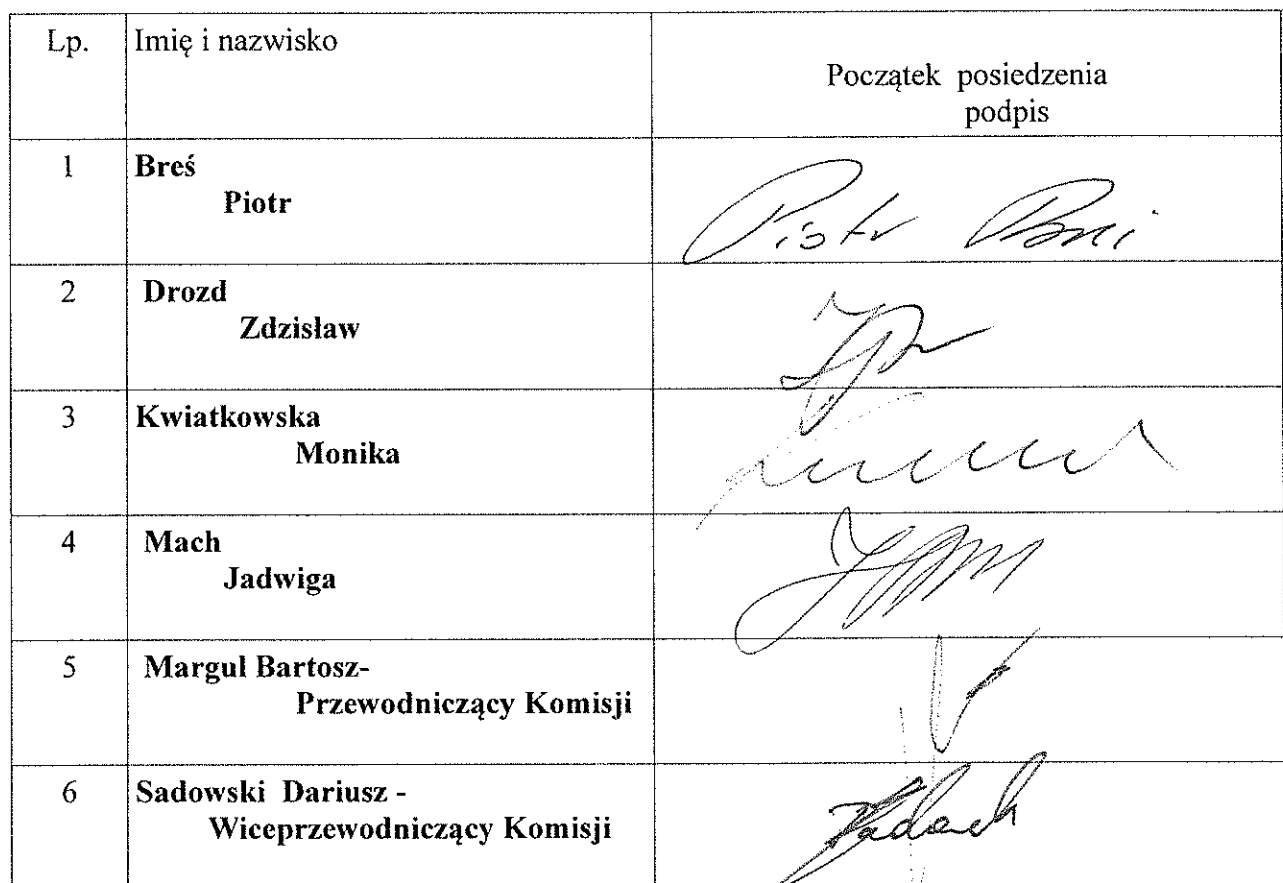 Lp. Imię i nazwisko
Początek posiedzenia
podpis
1 Breś
Piotr
Piotr
2 Drozd
Zdzisław
3 Kwiatkowska
Monika
4 Mach
Jadwiga
5 Margul Bartosz-
Przewodniczący Komisji
6 Sadowski Dariusz -
Wiceprzewodniczący Komisji